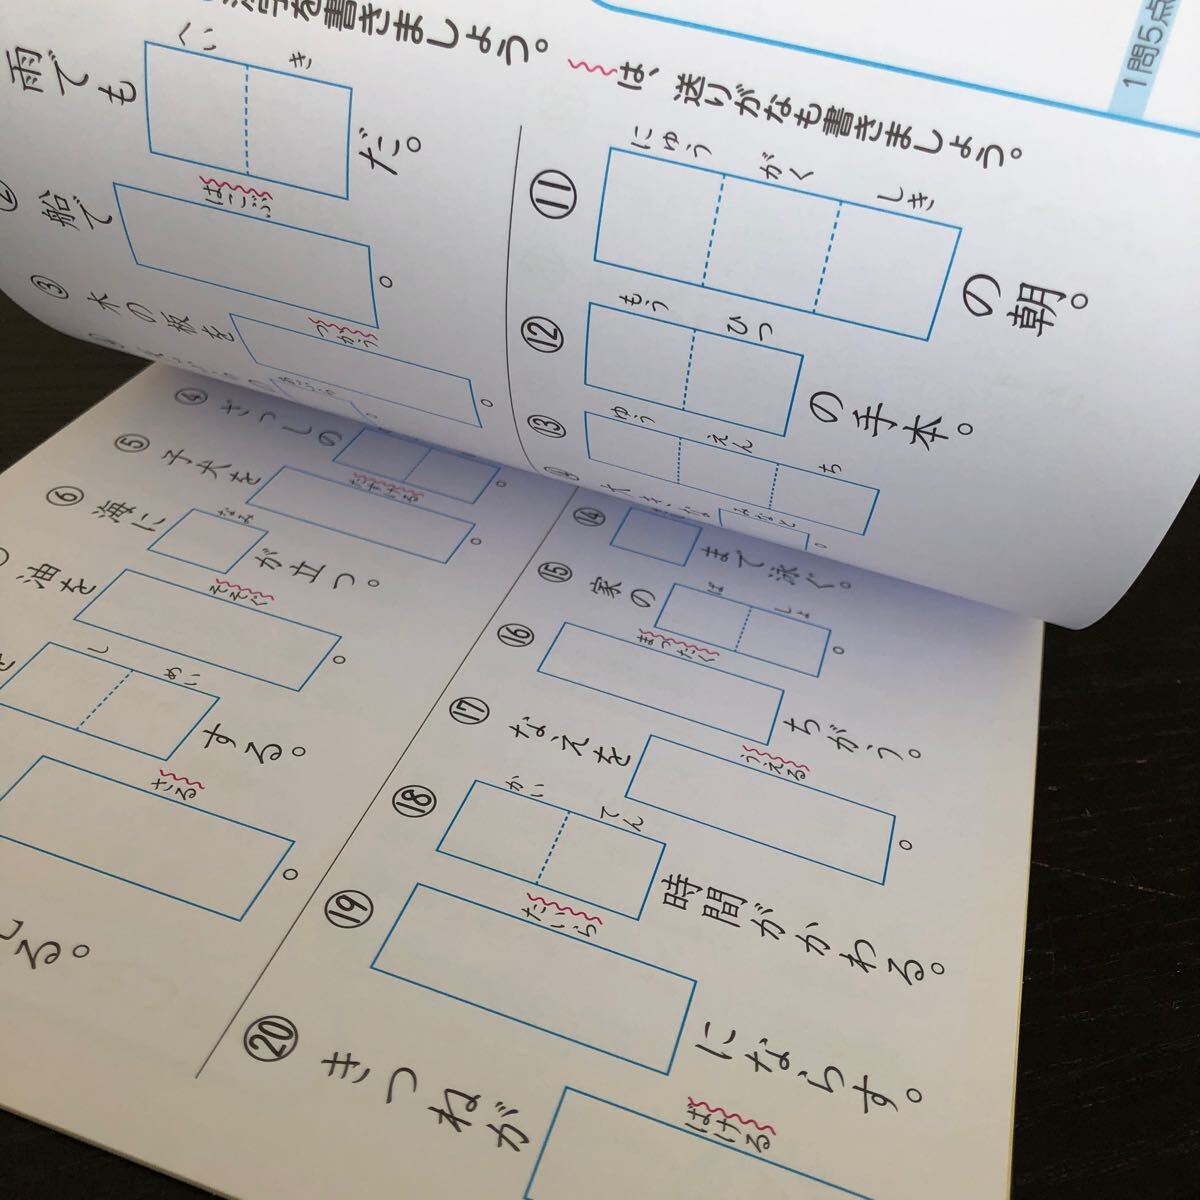 1問5点
を書きましょう。 は、送りがなも書きましょう。
雨でも
へい き
だ。
② 船で
はこぶ
。
③ 木の板を
つかう
。
④ さつしの
。
⑤ 子犬を
たすける
。
⑥ 海に
なみ
が立つ。
油を
そそぐ
。
し めい
する。
さる
。
る。
⑪
にゅう がく しき
の朝。
⑫
もう ひつ
の手本。
⑬
ゆう えん ち
。
⑭
みなと
まで泳ぐ。
⑮ 家の
ば しょ
。
⑯
まったく
ちがう。
⑰ なえを
うえる
。
⑱
かい てん
時間がかわる。
⑲
たいら
にならす。
⑳ きつねが
ばける